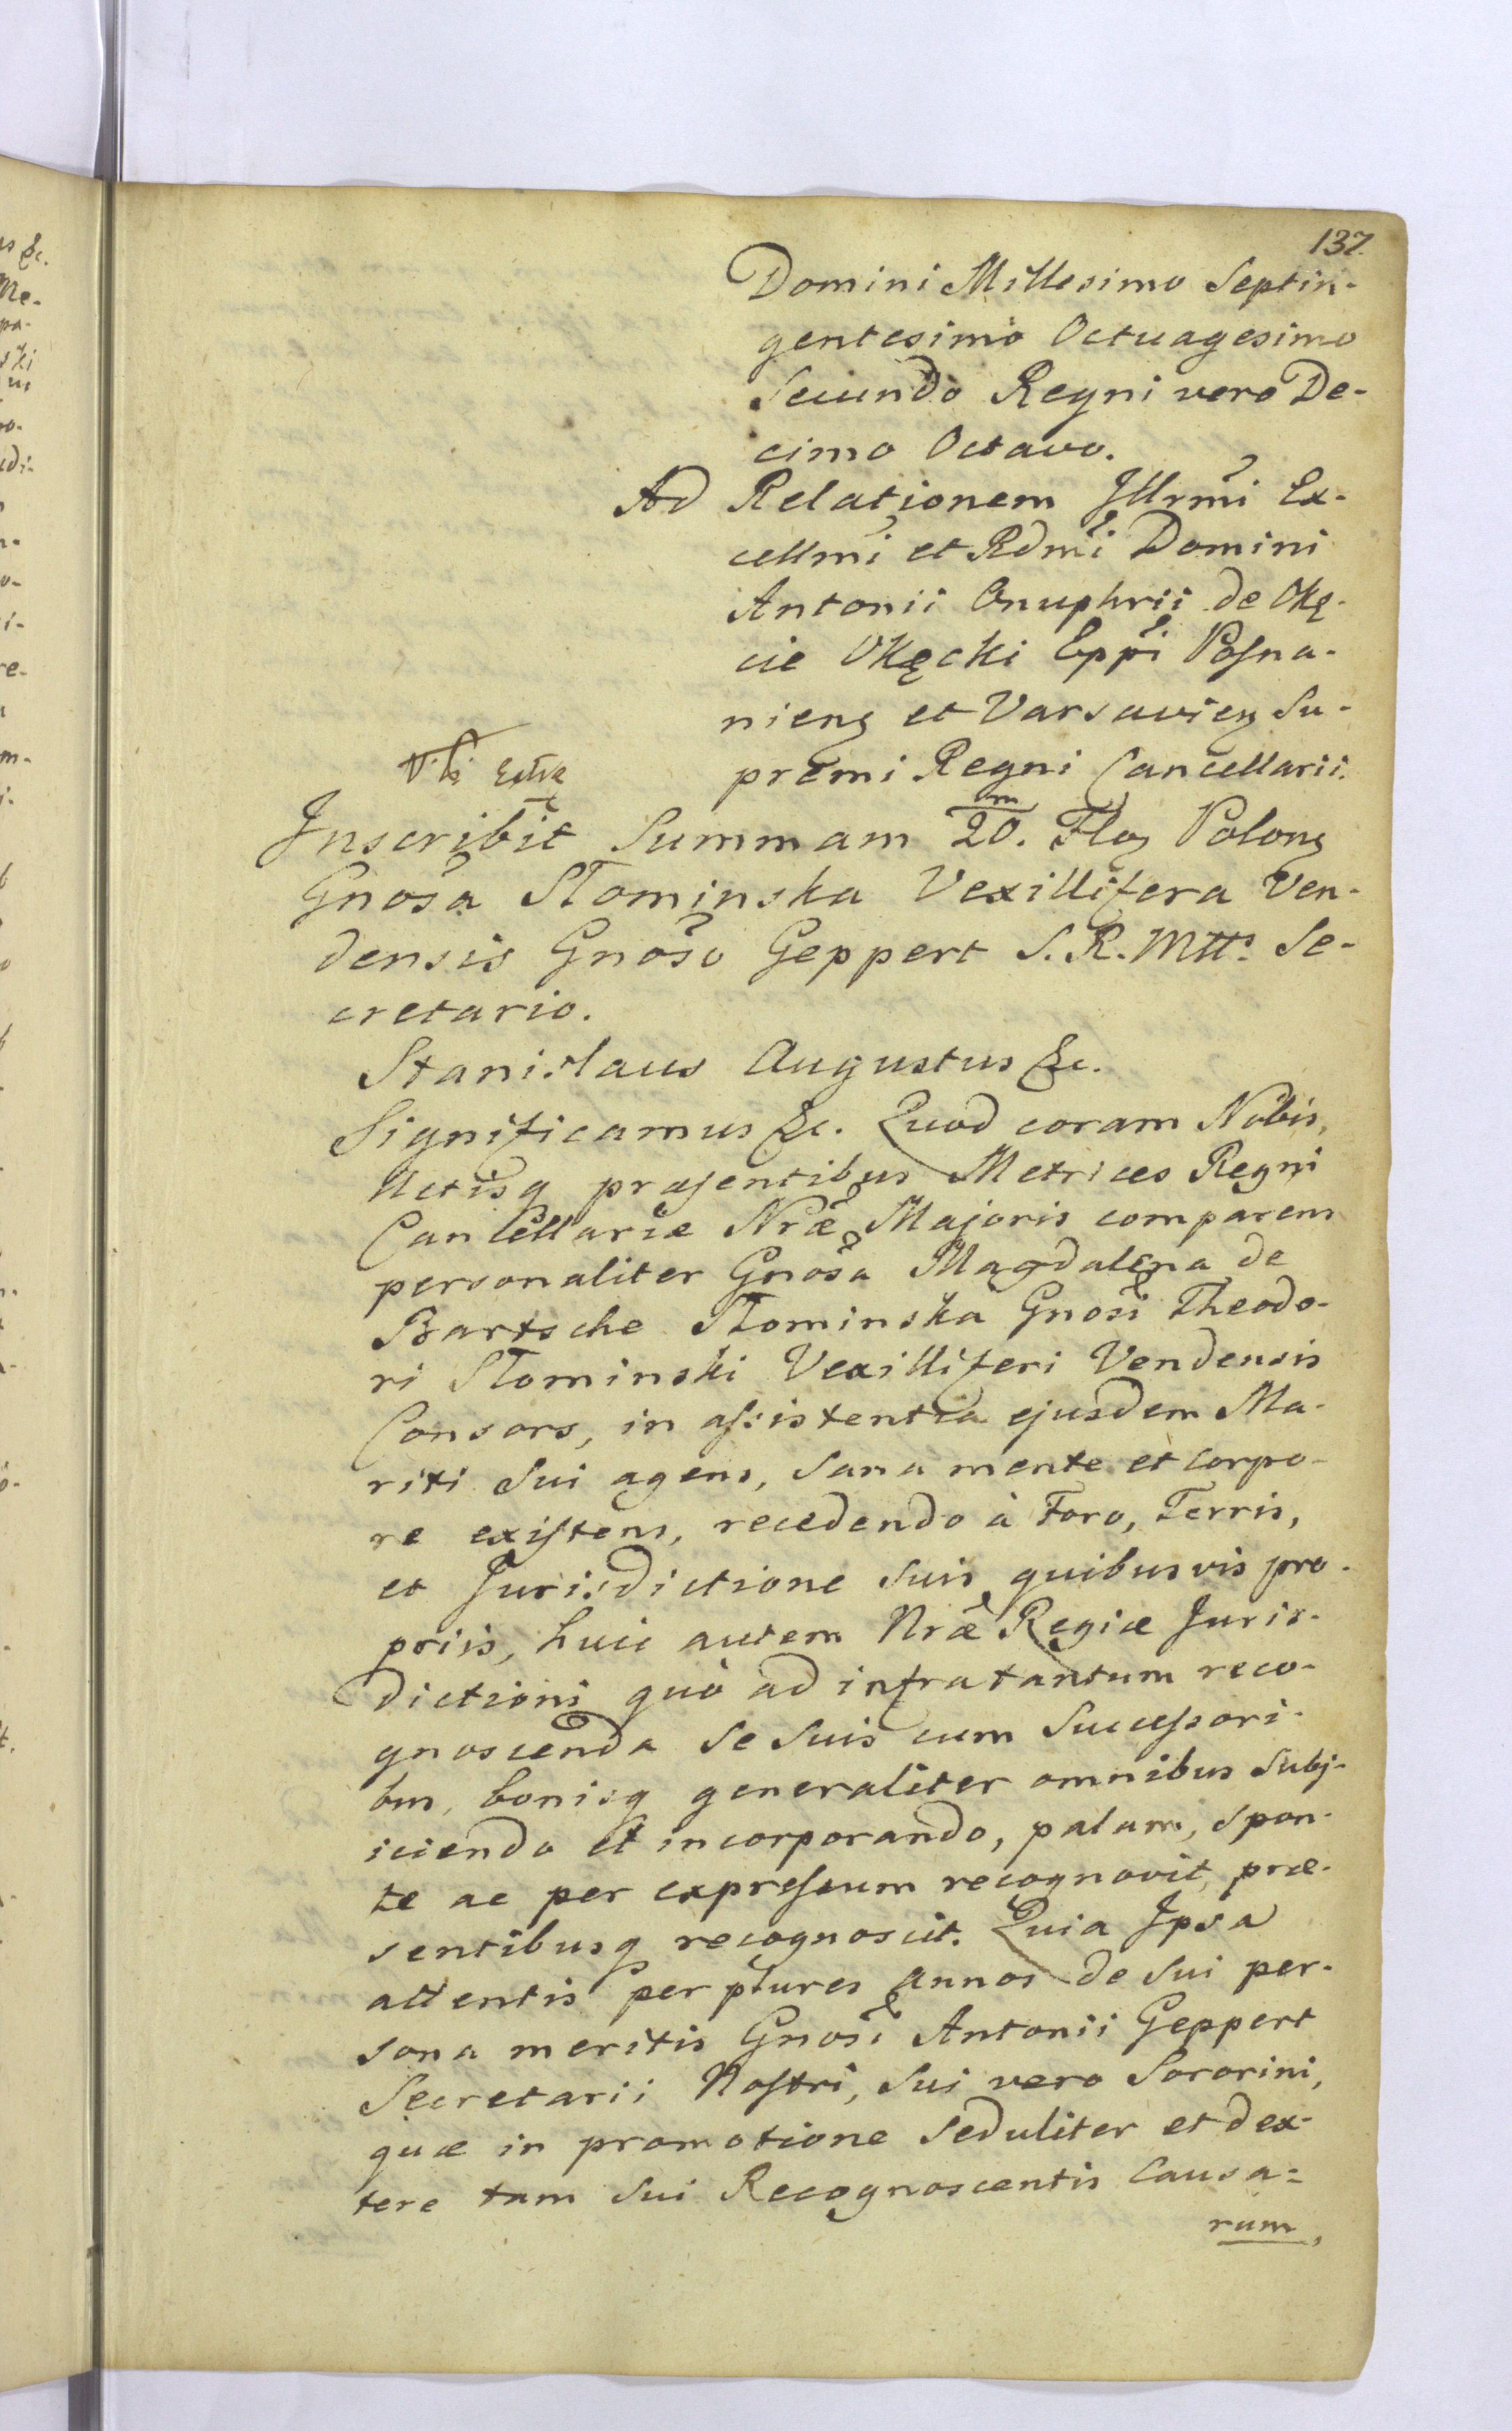 137.
Domini Millesimo Septin-
gentesimo Octuagesimo
Secundo Regni vero De-
cimo Octavo.
Ad Relationem Jllrmi Ex-
cellmi et Rdmi Domini
Antonii Onuphrii de Okę-
cie Okęcki Eppi Posna-
nieng et Varsavieng Su-
premi Regni Cancellarii.
Inscribit Summam 20.m Floz Polonz
Gnosa Słominska Vexillifera Ven-
densis Gnoso Geppert S. R. Mtts Se-
cretario.
Stanislaus Augustus &c.
Significamus &c. Quod coram Nobis,
Actisq præsentibus Metrices Regni
Cancellariæ Nræ Majoris comparens
personaliter Gnosa Magdalena de
Bartsche Słominska Gnosi Theodo-
ri Słominski Vexilliferi Vendensis
Consors, in assistentia ejusdem Ma-
riti Sui agens, Sana mente et Corpo-
re existens, recedendo à Foro, Terris,
et Jurisdictione Suis quibusvis pro-
priis, huic autem Nræ Regiæ Juris-
dictioni quò ad infratantum reco-
gnoscenda Se Suis cum Successori-
bus, bonisq generaliter omnibus Subj-
iciendo et incorporando, palam, Spon-
te ac per expressum recognovit, præ-
sentibusq recognoscit. Quia Ipsa
attentis per plures annos de Sui per-
sona meritis Gnosi Antonii Geppert
Secretarii Nostri, Sui vero Sororini,
quæ in promotione Seduliter et dex-
tere tam Sui Recognoscentis Causa=
rum,